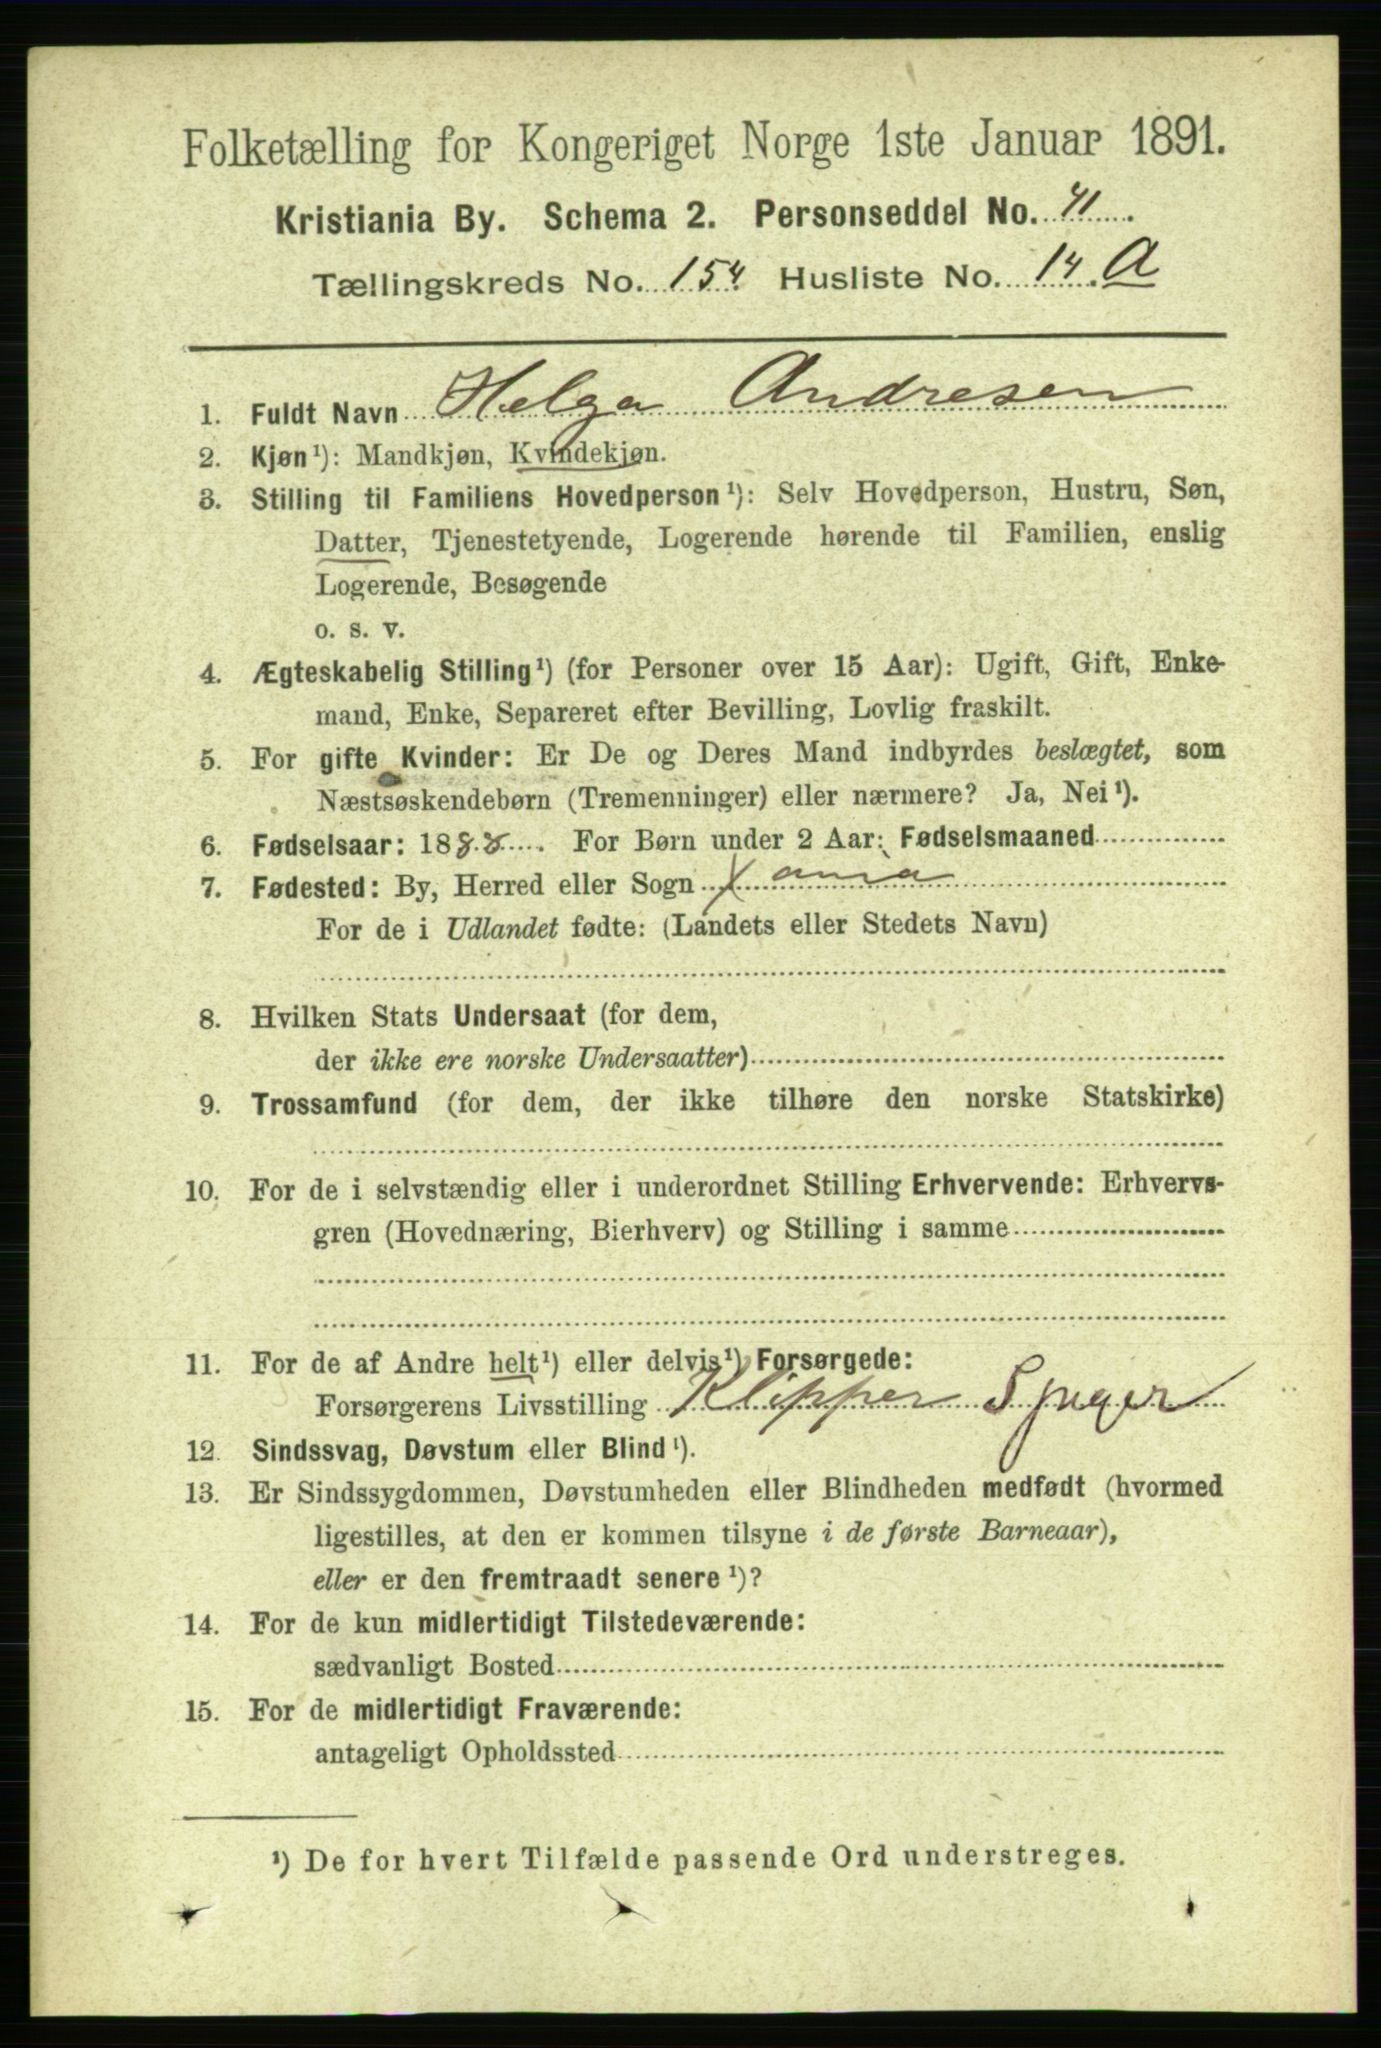 Folketælling for Kongeriget Norge 1ste Januar 1891.
Kristiania By. Schema 2. Personseddel No. 41.
Tællingskreds No. 154 Husliste No. 14. A
1. Fuldt Navn Helga Andresen
2. Kjøn¹): Mandkjøn, Kvindekjøn.
3. Stilling til Familiens Hovedperson¹): Selv Hovedperson, Hustru, Søn,
Datter, Tjenestetyende, Logerende hørende til Familien, enslig
Logerende, Besøgende
o. s. v.
4. Ægteskabelig Stilling¹) (for Personer over 15 Aar): Ugift, Gift, Enke-
mand, Enke, Separeret efter Bevilling, Lovlig fraskilt.
5. For gifte Kvinder: Er De og Deres Mand indbyrdes beslægtet, som
Næstsøskendebørn (Tremenninger) eller nærmere? Ja, Nei¹).
6. Fødselsaar: 1888. For Børn under 2 Aar: Fødselsmaaned
7. Fødested: By, Herred eller Sogn Xania
For de i Udlandet fødte: (Landets eller Stedets Navn)
8. Hvilken Stats Undersaat (for dem,
der ikke ere norske Undersaatter)
9. Trossamfund (for dem, der ikke tilhøre den norske Statskirke)
10. For de i selvstændig eller i underordnet Stilling Erhvervende: Erhvervs-
gren (Hovednæring, Bierhverv) og Stilling i samme
11. For de af Andre helt¹) eller delvis¹) Forsørgede:
Forsørgerens Livsstilling Klipper
12. Sindssvag, Døvstum eller Blind¹).
13. Er Sindssygdommen, Døvstumheden eller Blindheden medfødt (hvormed
ligestilles, at den er kommen tilsyne i de første Barneaar),
eller er den fremtraadt senere¹)?
14. For de kun midlertidigt Tilstedeværende:
sædvanligt Bosted
15. For de midlertidigt Fraværende:
antageligt Opholdssted
¹) De for hvert Tilfælde passende Ord understreges.